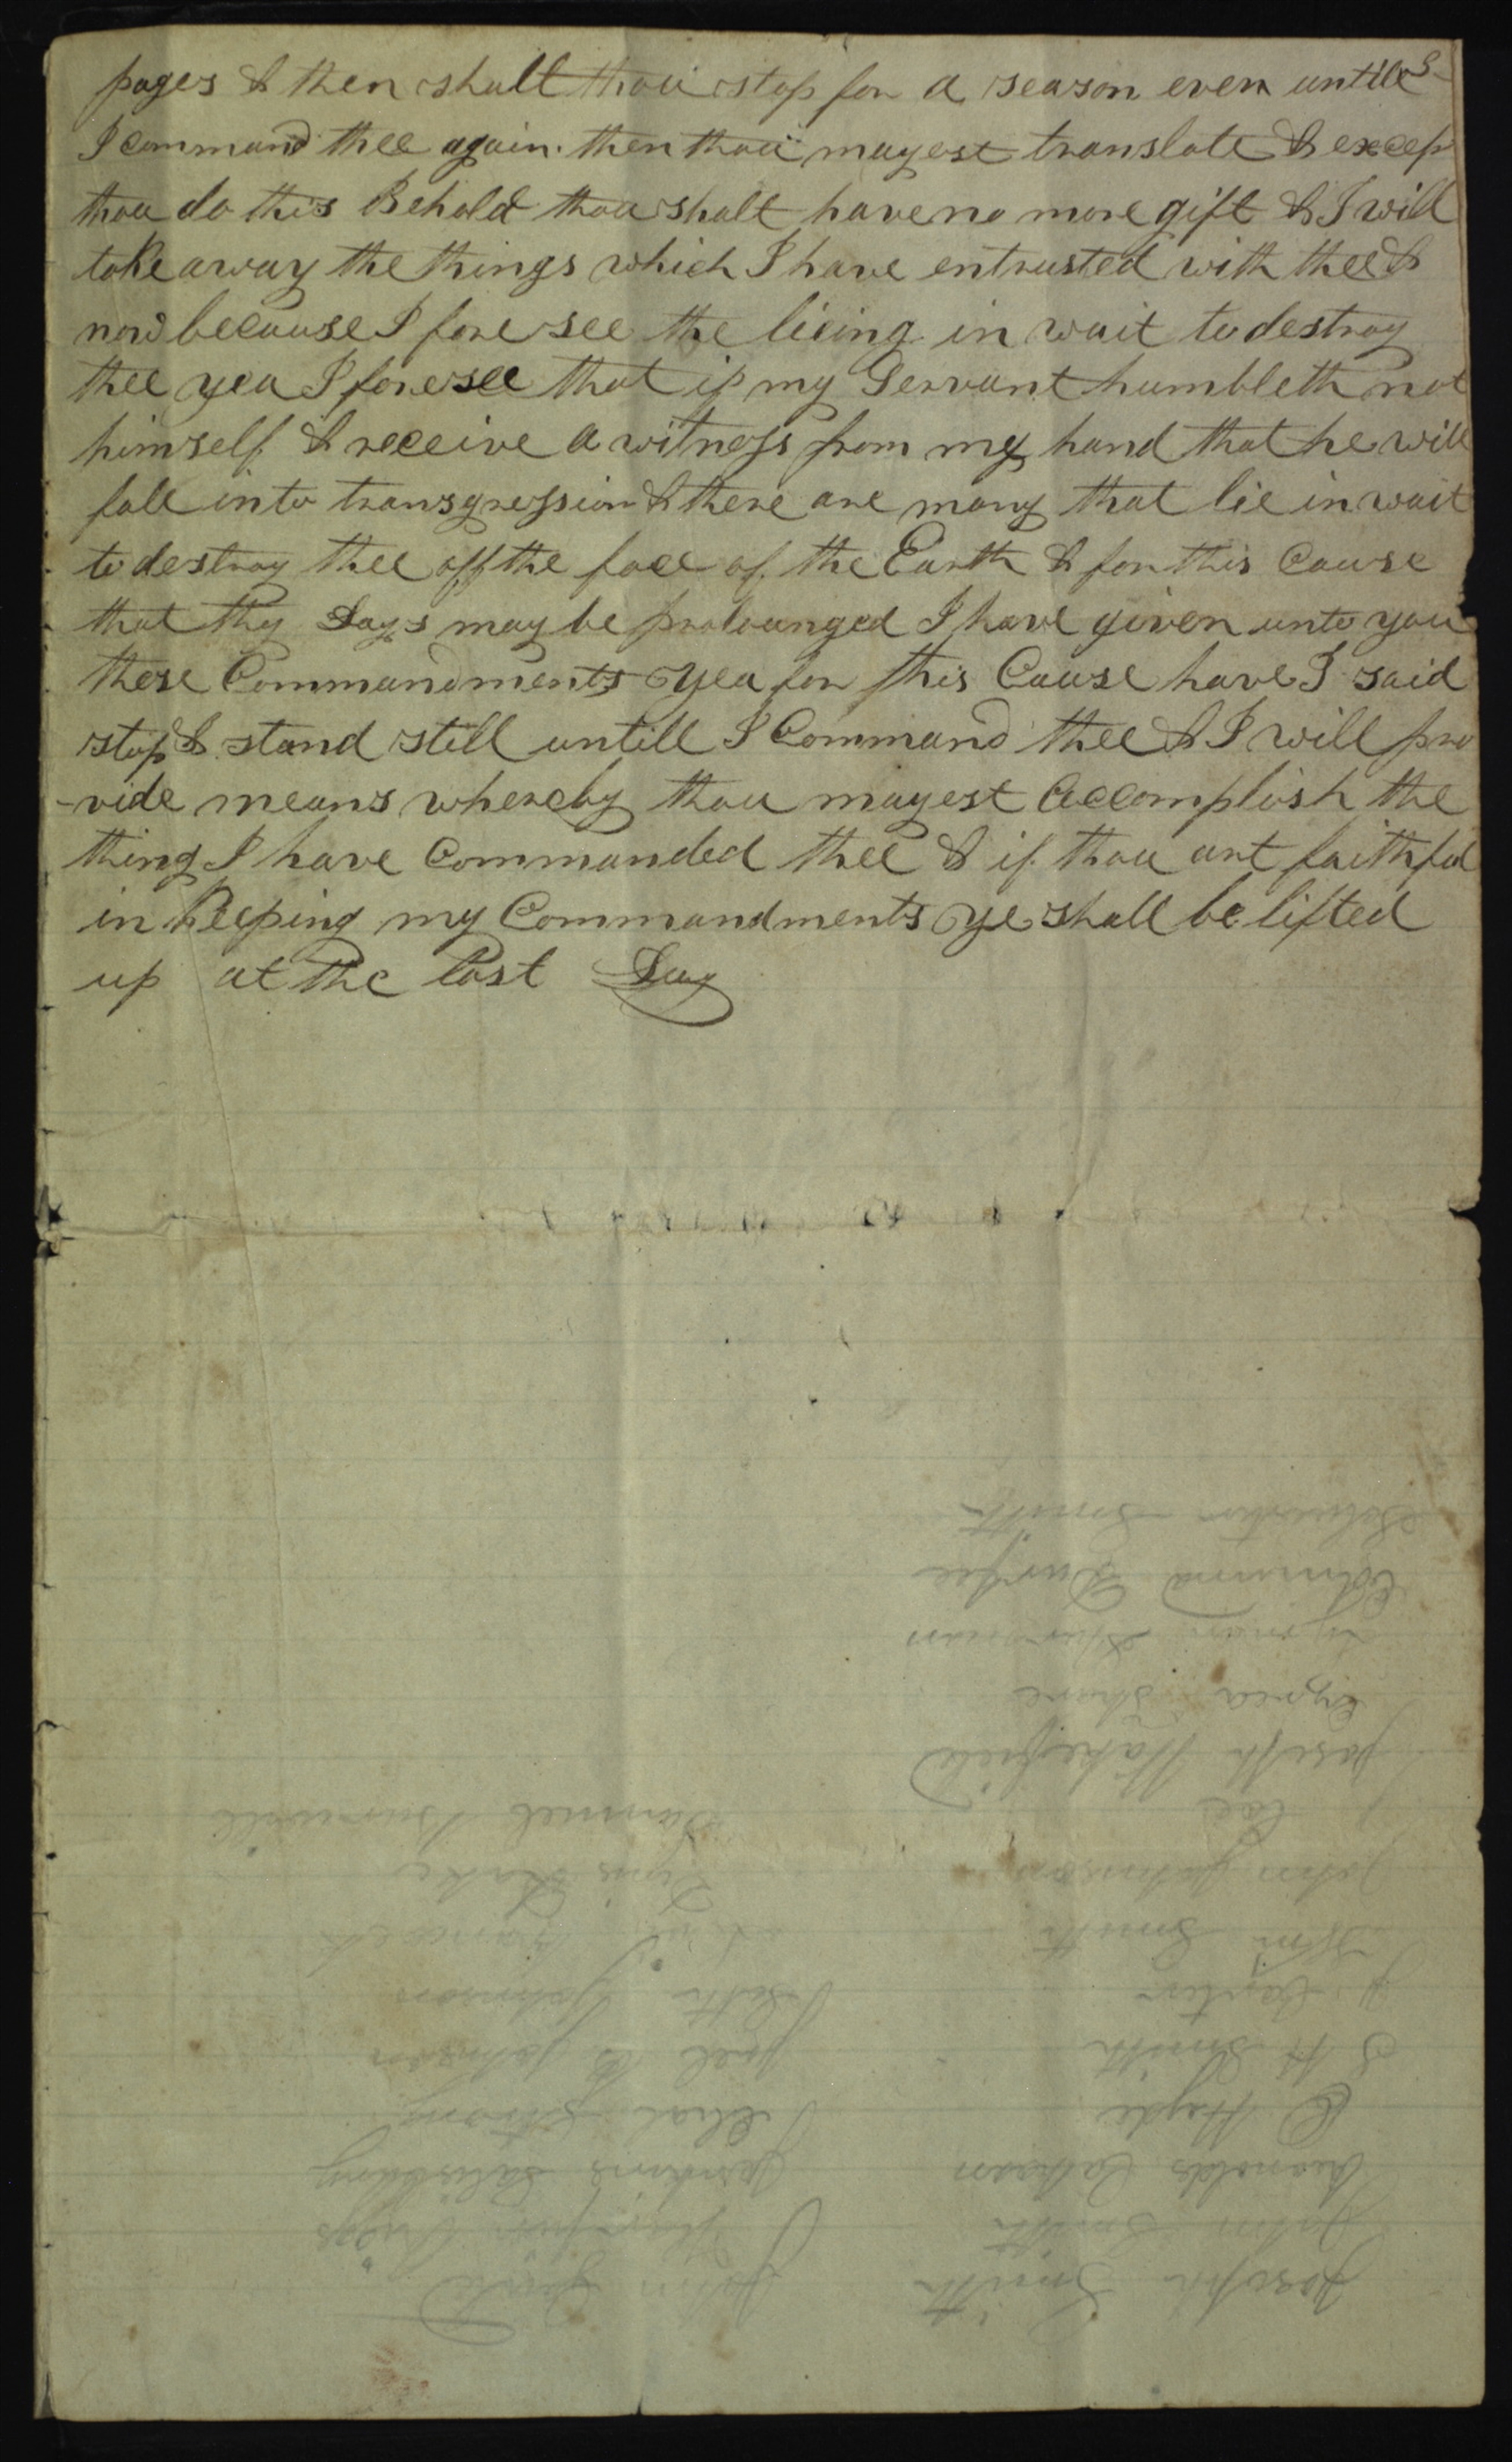 pages & then shalt thou stop for a season even untill
I command thee again. then thou mayest translate & excep
thou do this Behold thou shalt have no more gift & I will
take away the things which I have entrusted with thee &
now because I foresee the lieing in wait to destroy
thee yea I foresee that if my Servant humbleth not
himself & receive a witness from my hand that he will
fall into transgression & there are many that lie in wait
to destroy thee off the face of the Earth & for this Cause
that thy Days may be prolounged I have given unto you
these Commandments Yea for this Cause have I said
stop & stand still untill I Command thee & I will pro
-vide means whereby thou mayest Accomplish the
thing I have Commanded thee & if thou art faithful
in Keeping my Commandments ye shall be lifted
up at the last Day
Joseph Smith
John Smith
Reanolds Cahoon
O Hyde
S H Smith
J. Carter
Wm Smith
John Johnson
J Coe
Joseph Wakefield
Ezra Thare
Lyman Sherman
Edmund Durfee
Sylvester Smith
John Gould
Jenkins Salisbury
Joel H Johnson
Seth Johnson